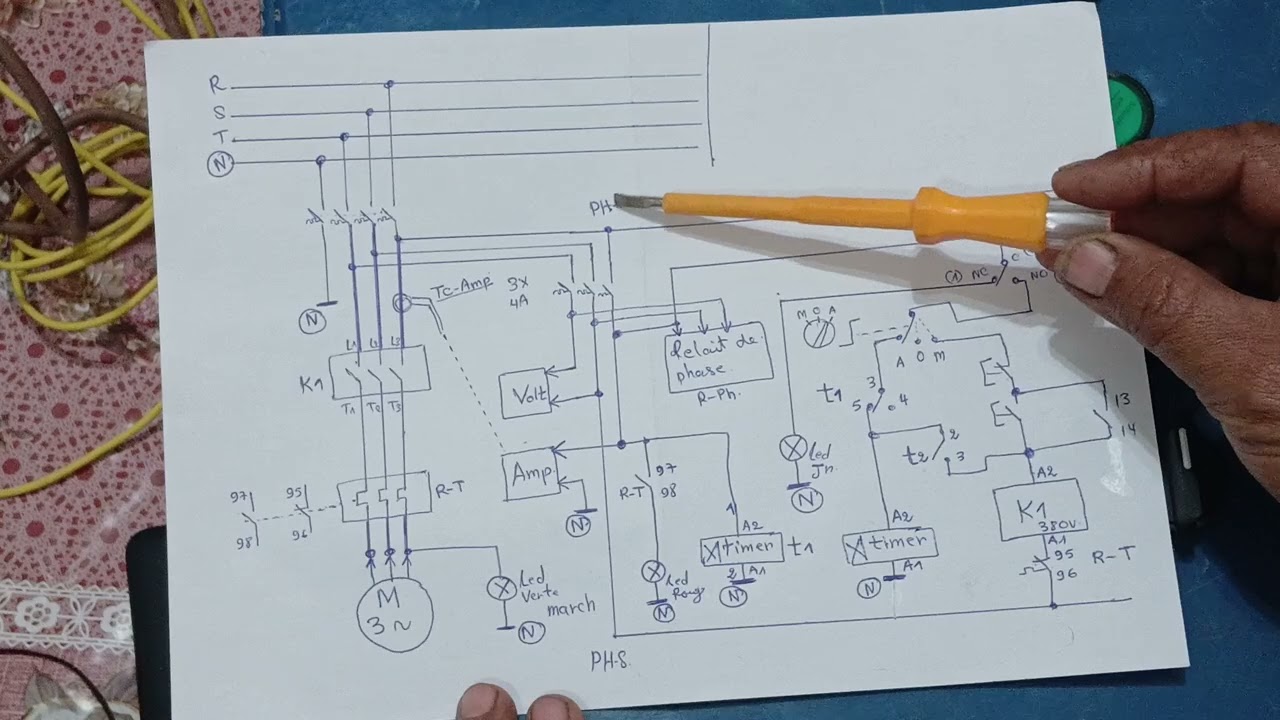 R
S
T
N
PH.
TC-Amp
3x
4A
N
L1 L2 L3
K1
T1 T2 T3
Volt
Relait de
phase
R-Ph.
(1) NC
NO
M O A
A O M
t1
3
5 4
13
14
t2
2
3
Amp
N
97
R-T
98
Led
Jn.
N
A2
K1
380V.
A1
95
96
R-T
97
98
95
96
R-T
1 A2
timer t1
2 A1
N
A2
timer
A1
N
Led
Roug
N
M
3~
Led
verte
march
N
PH.S.